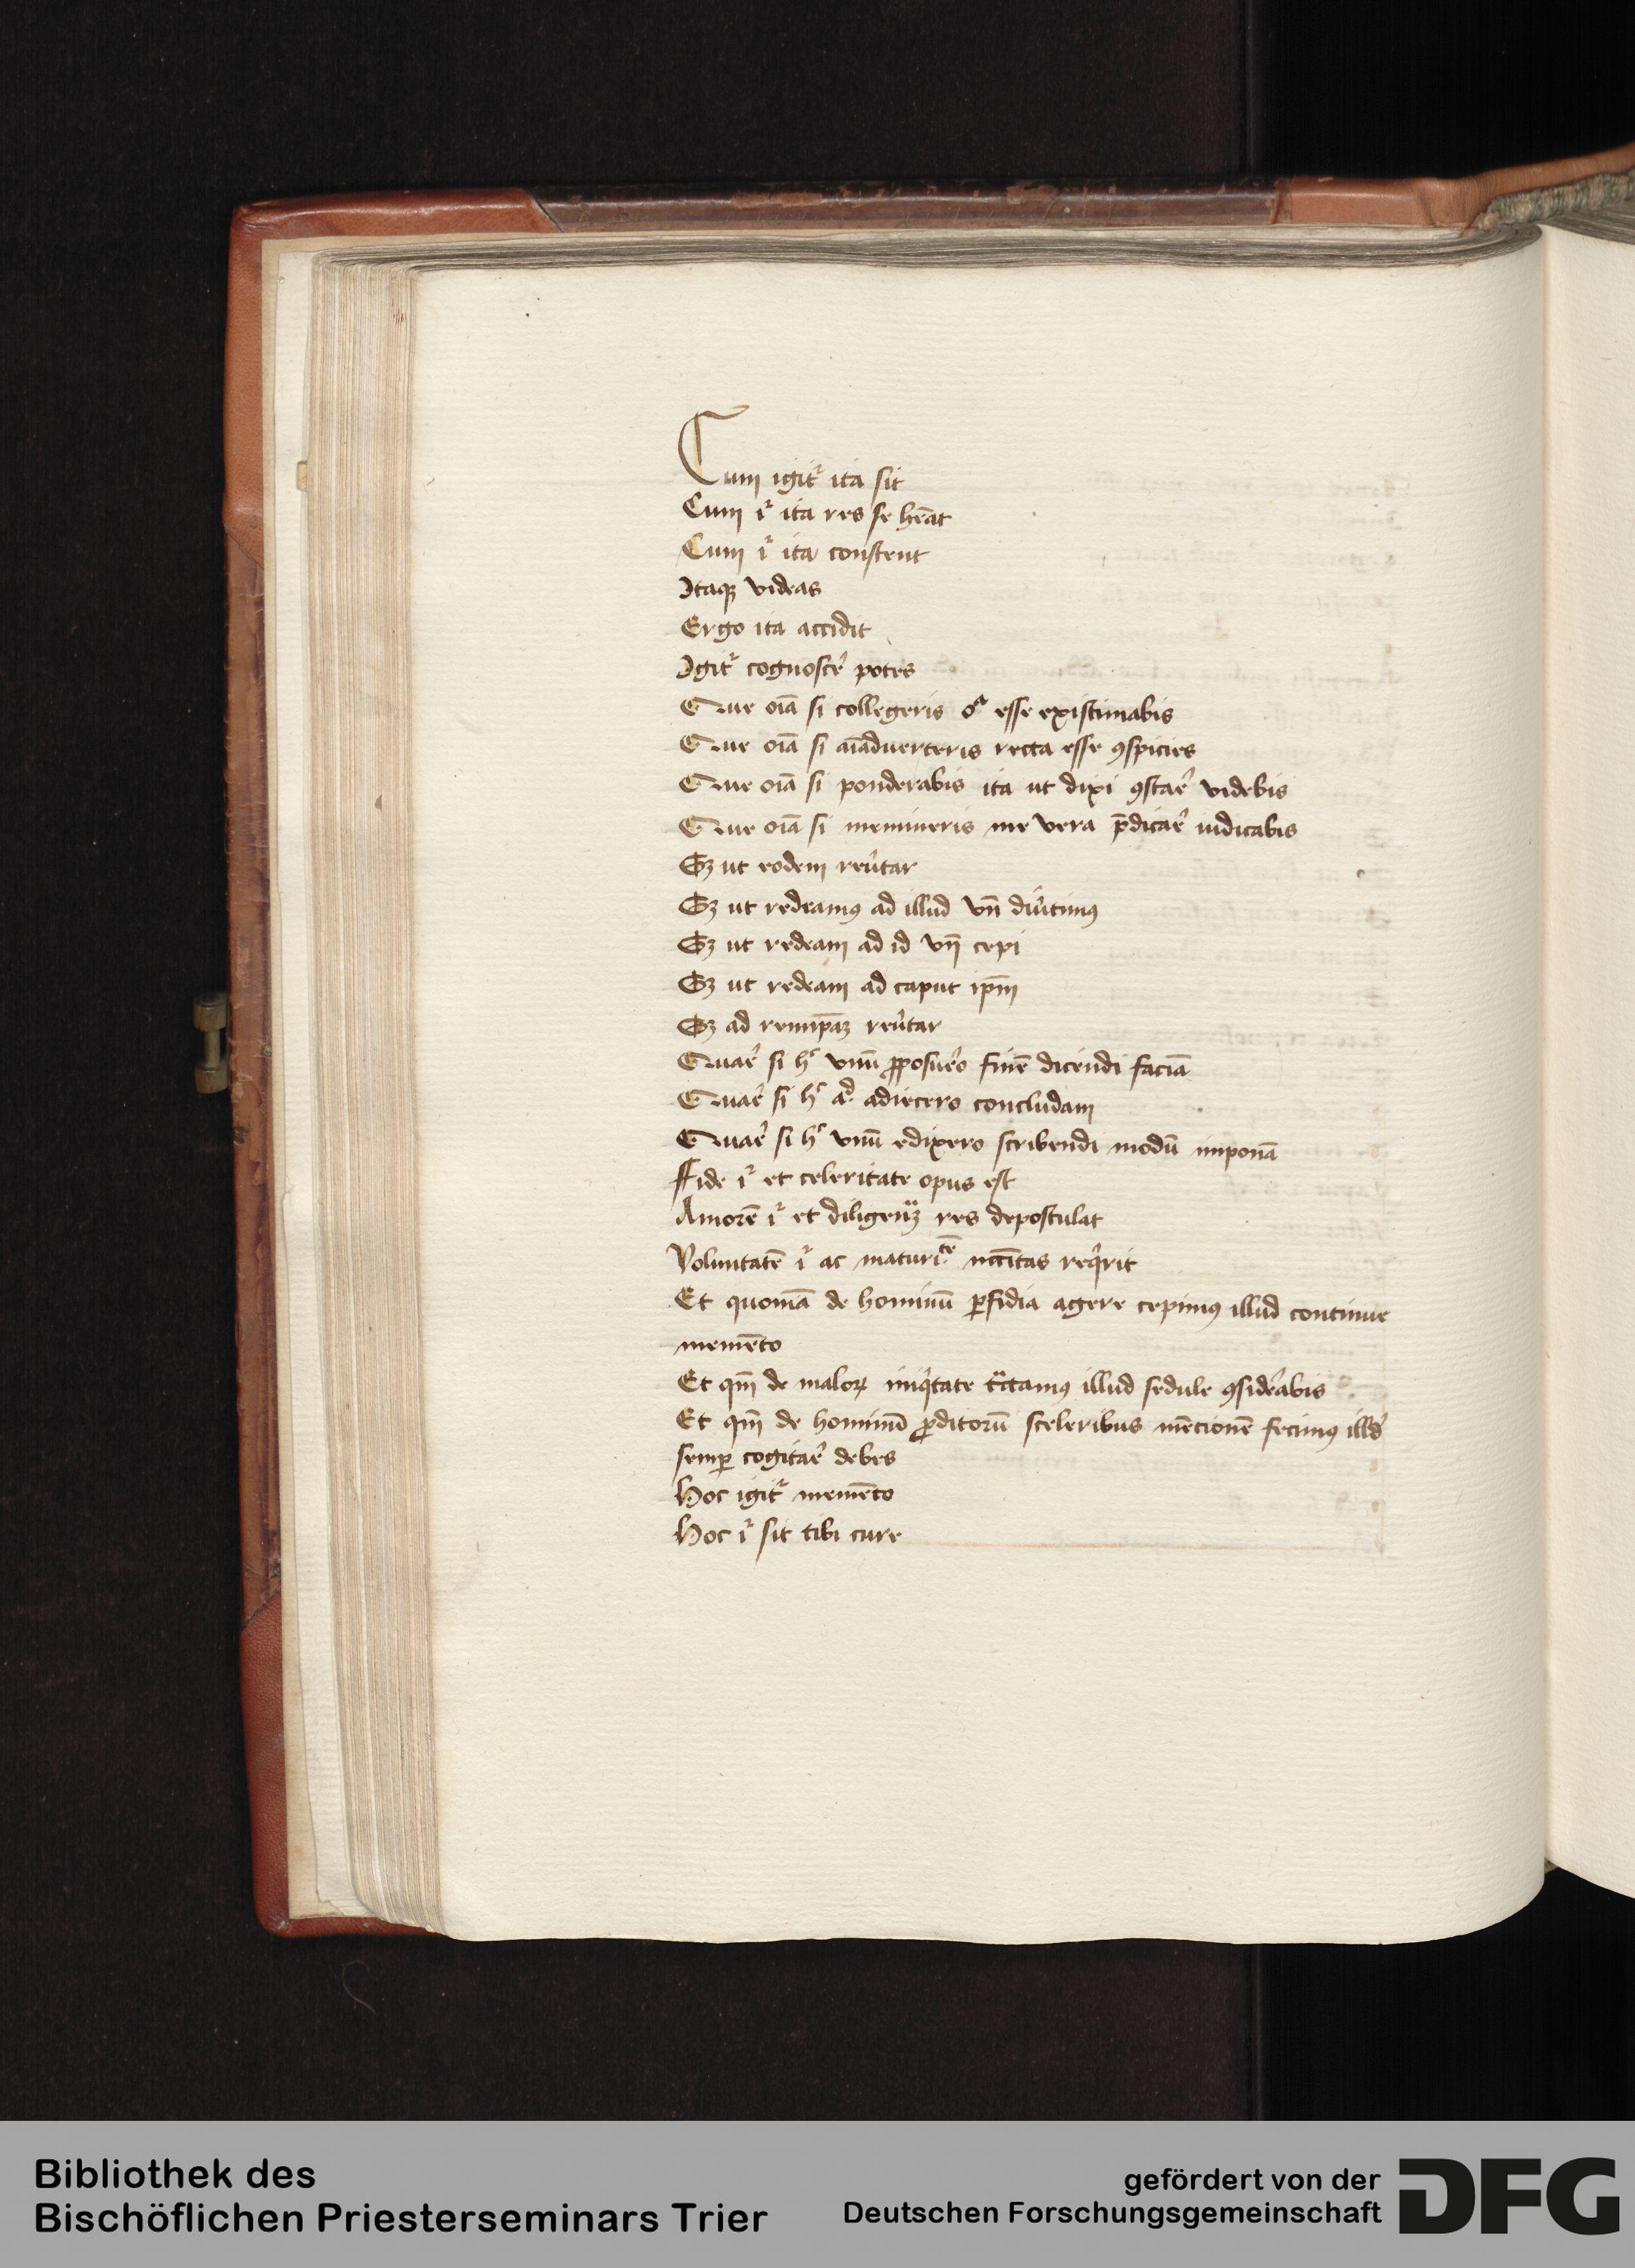 Cum igit᷑ ita sit
Cum i᷑ ita res se hēāt
Cum i᷑ ita constent
Itaqꝫ videas
Ergo ita accidit
Igit᷑ cognosce᷑ potes
Que oīa si collegeris esse existimabis
Que oīa si aīaduerteris recta esse ꝯspicies
Que oīa si ponderabis ita ut dixi ꝯstae᷑ videbis
Que oīa si memineris me vera p̄dicae᷑ iudicabis
Sꝫ ut eodem reu᷑tar
Sꝫ ut redeamꝰ ad illud vn̄ diu᷑timꝰ
Sꝫ ut redeam ad id vn̄ cepi
Sꝫ ut redeam ad caput ip̄m
Sꝫ ad rem reu᷑tar
Quae᷑ si hͨ vnū ꝓposue᷑o finē dicendi faciā
Quae᷑ si hͨ aͩ adiecero concludam
Quae᷑ si hͨ vnū edixero scribendi modū imponā
Fide i᷑ et celeritate opus est
Amorē i᷑ et diligen᷑ꝫ res depostulat
Voluntatē i᷑ ac maturi.tē ncc̄itas req᷑rit
Et quoniā de hominū ꝑfidia agere cepimꝰ illud continue
memēto
Et qm̄ de maloꝝ iniq᷑tate t᷑ctamꝰ illud sedule ꝯside᷑abis
Et qm̄ de hominū ꝓditorū sceleribus mētionē fecimꝰ illd᷑
semꝑ cogitae᷑ debes
Hoc igit᷑ memēto
Hoc i᷑ sit tibi cure
Bibliothek des
Bischöflichen Priesterseminars Trier
gefördert von der
Deutschen Forschungsgemeinschaft
DFG